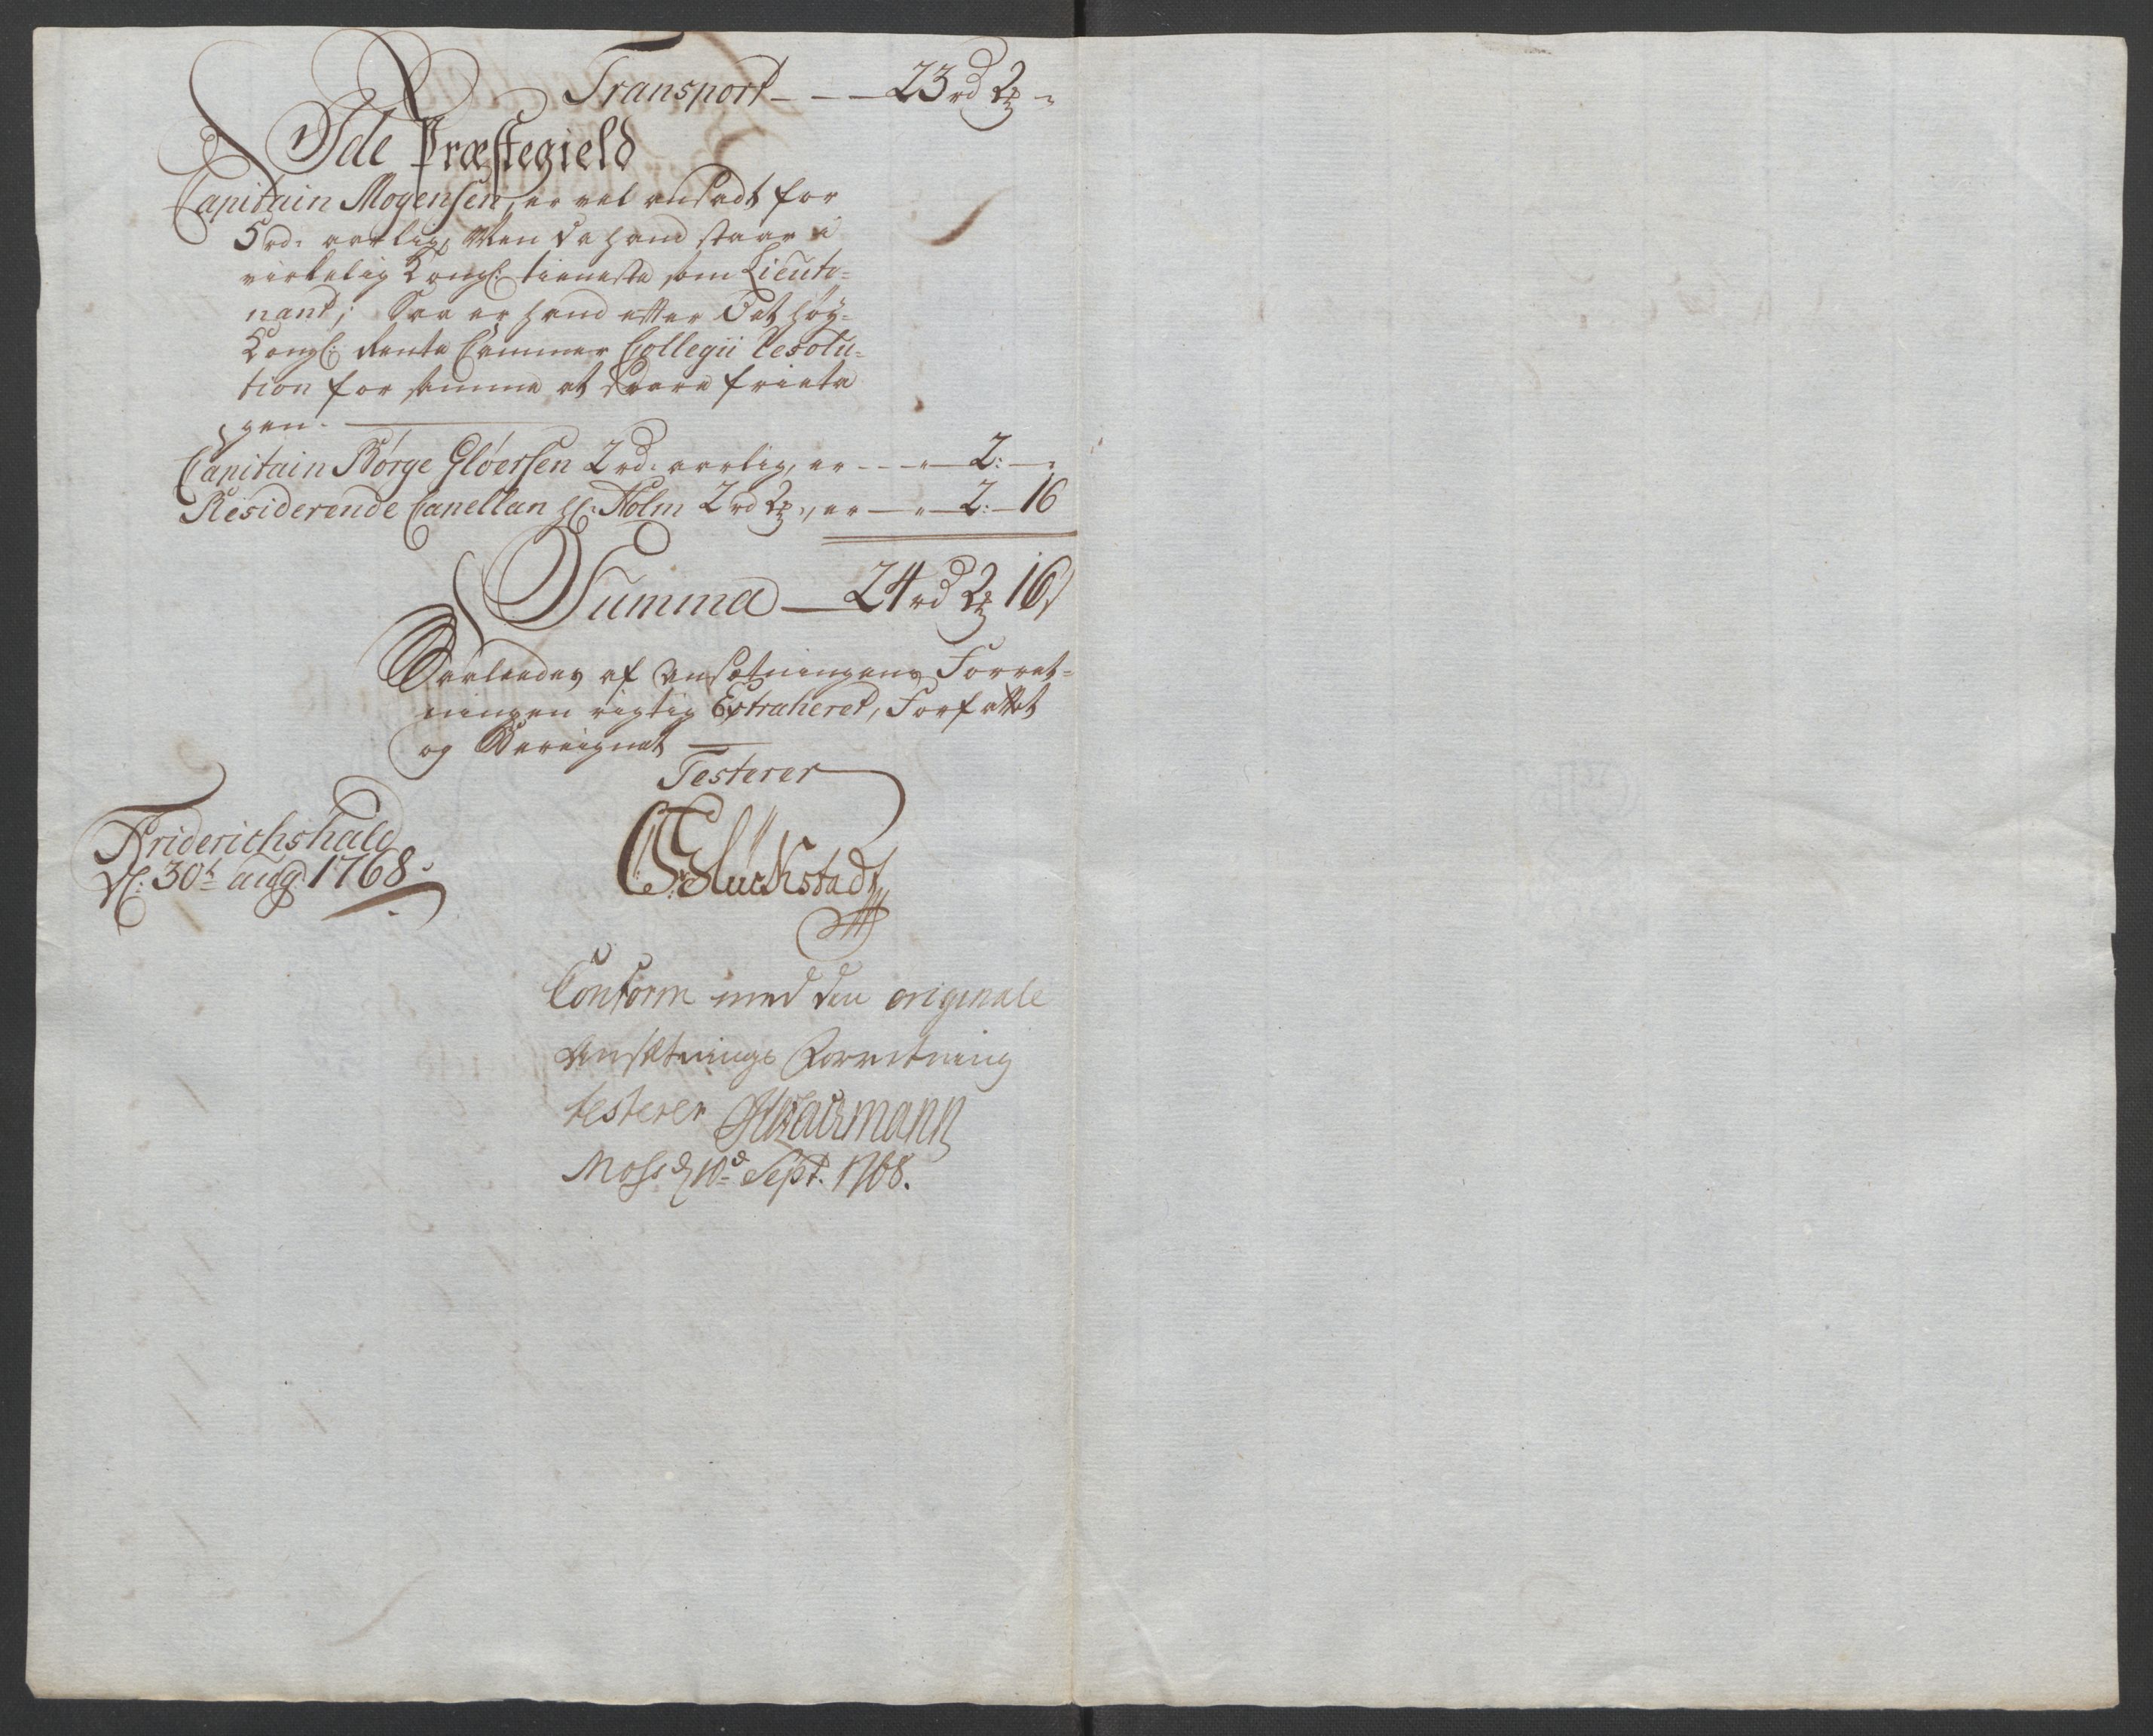 Transport - - - 23 rd 2 ß -
Ide Præstegield
Capitain Mogensen, er vel ansadt for
5 rd: aarlig, Men da hand staar i
virkelig Kongl: tieneste som Lieute-
nant; Saa er hand efter Det høy-
Kongl: Rente Cammer Collegii Resolu-
tion for samme at svare frieta
gen.
Capitain Børge Gløersen 2 rd: aarlig, er - - - 2: -
Residerende Capellan Hr: Holm 2 rd , er - 2: - 16
Summa - 24 rd 2 16 s
Saaledes af Ansætningens Forret-
ningen rigtig Extraheret, Forfattet
og Beregnet
Testerer
Friderichshald
d: 30t aug: 1768.
Glückstadt
Conform med den originale
Ansætnings Forretning
testerer
Moss d 10d Sept. 1768.